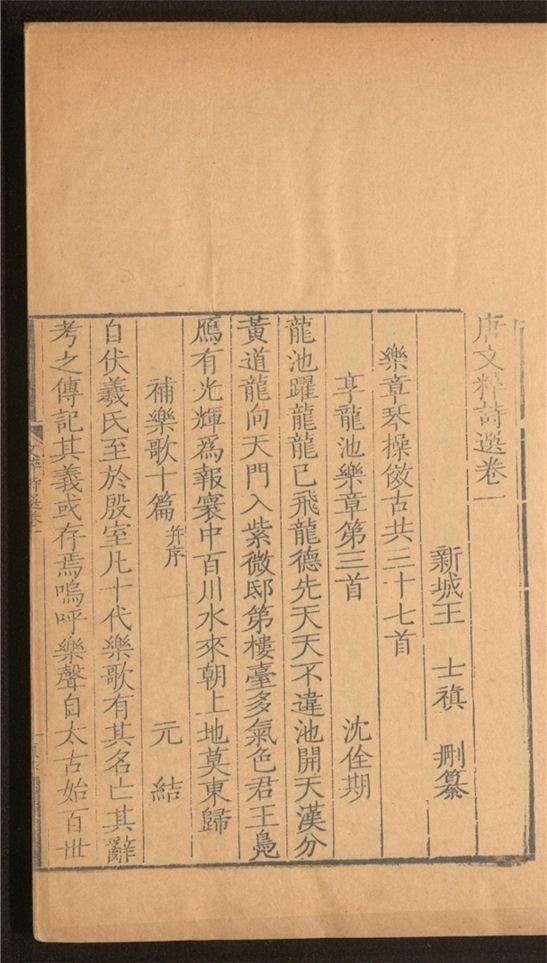 唐文粹詩選卷一
新城王 士禛 刪纂
樂章琴操倣古共三十七首
享龍池樂章第三首 沈佺期
龍池躍龍龍已飛龍德先天天不違池開天漢分
黃道龍向天門入紫微邸第樓臺多氣色君王鳧
鴈有光輝爲報寰中百川水來朝上地莫東歸
補樂歌十篇并序 元 結
自伏羲氏至於殷室凡十代樂歌有其名亡其辭
考之傳記其義或存焉嗚呼樂聲自太古始百世
文粹詩選卷一